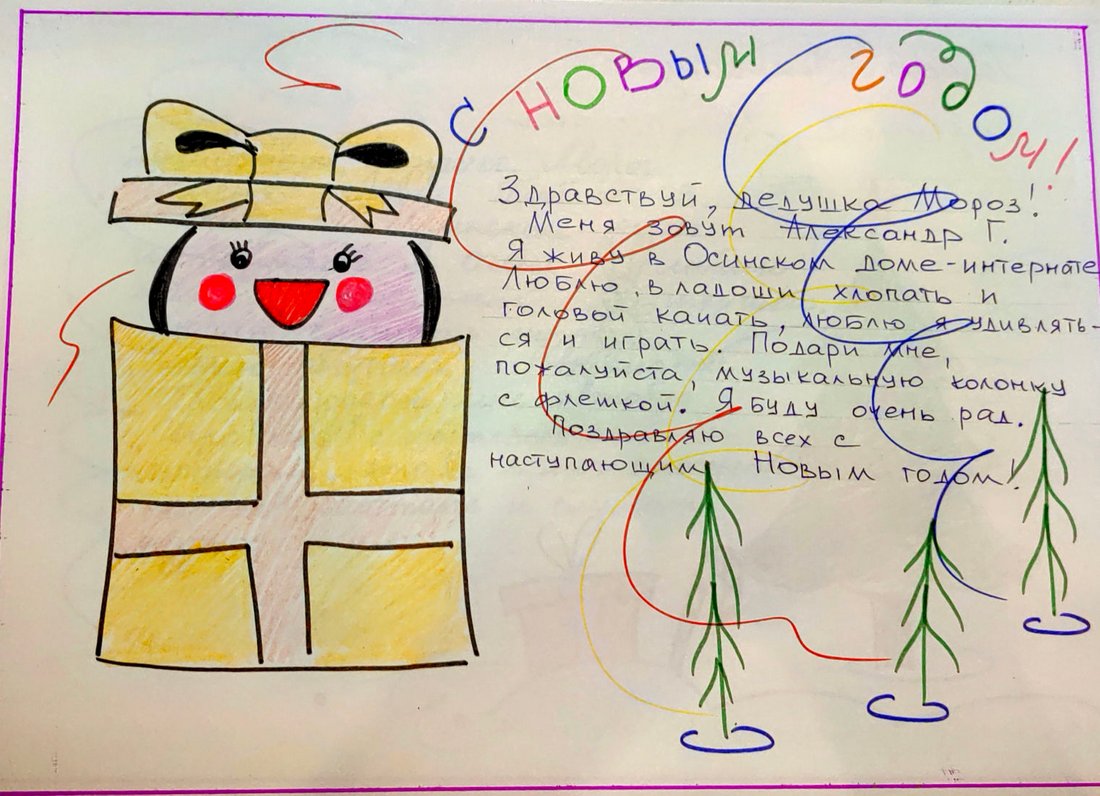 С НОВЫМ ГОДОМ!
Здравствуй, дедушка Мороз!
Меня зовут Александр Г.
Я живу в Осинском доме-интернате
Люблю в ладоши хлопать и
головой качать, люблю я удивлять-
ся и играть. Подари мне,
пожалуйста, музыкальную колонку
с флешкой. Я буду очень рад.
Поздравляю всех с
наступающим Новым годом!